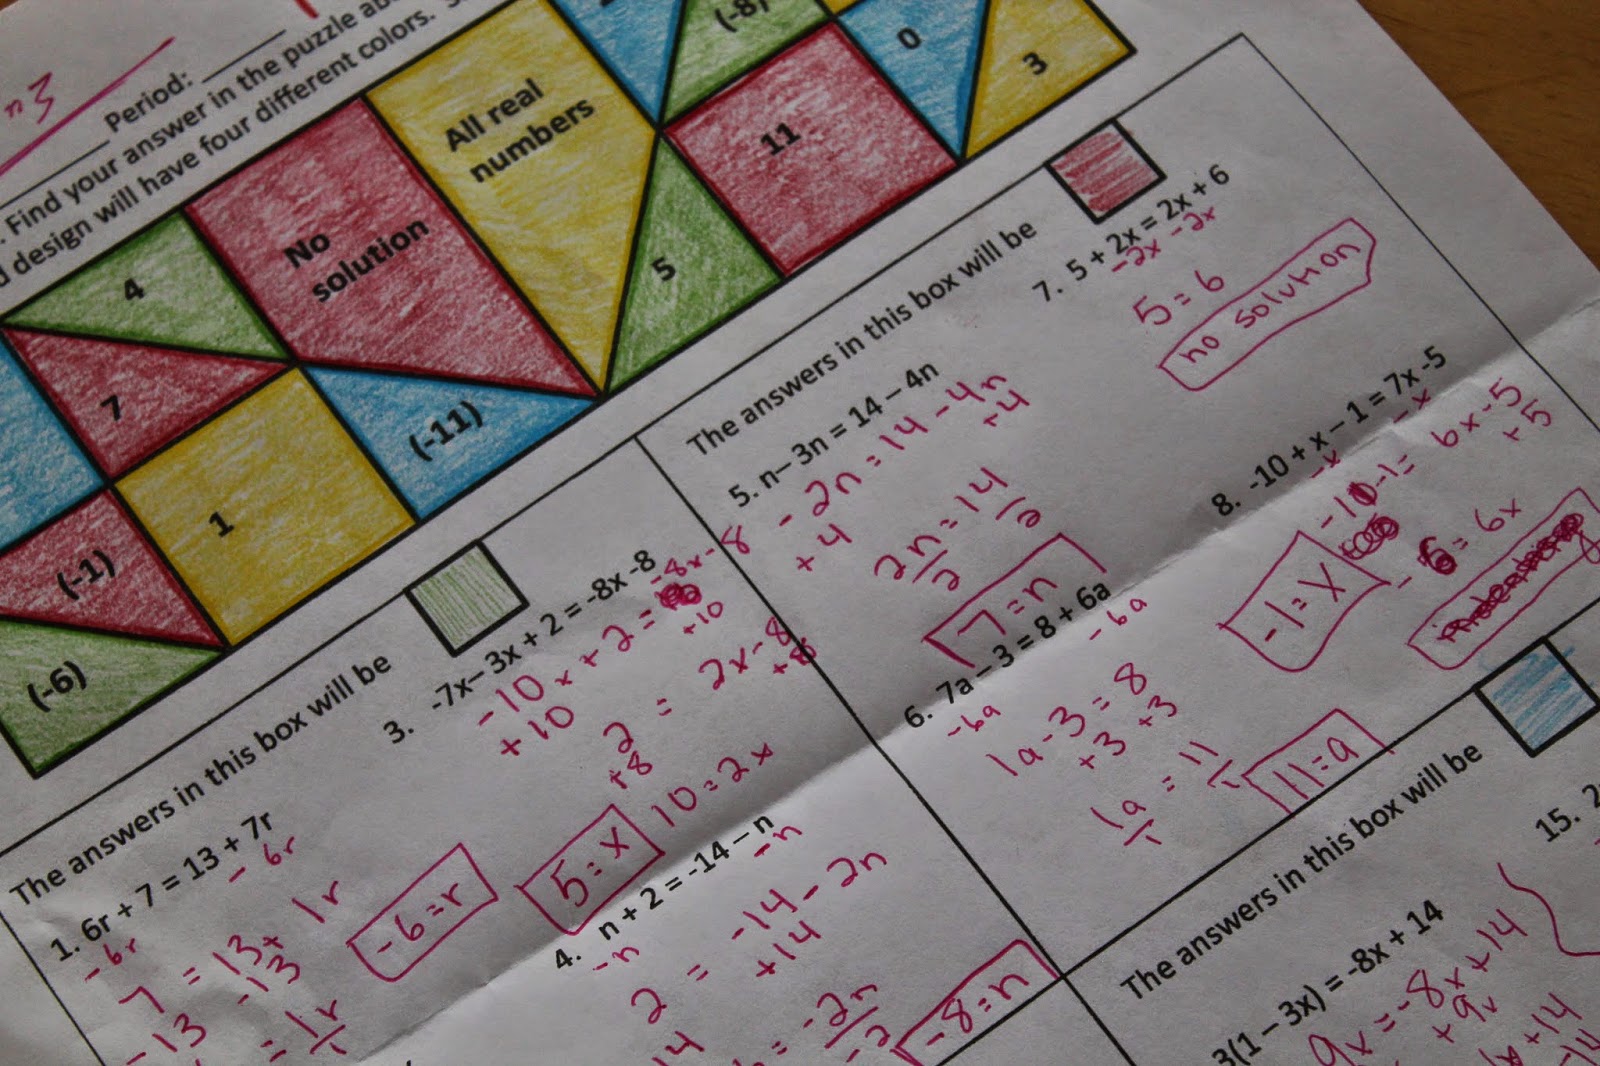 n3
Period:
. Find your answer in the puzzle
design will have four different colors.
(-8)
0
3
All real
numbers
11
No
solution
5
4
7
(-11)
1
(-1)
(-6)
The answers in this box will be
1. 6r + 7 = 13 + 7r
-6r - 6r
7 = 13 + 1r
-13 -13
= 1r
1
-6 = r
3. -7x – 3x + 2 = -8x -8
-10x + 2 = -8x - 8
+10 +10
2 = 2x - 8
+8 +8
10 = 2x
5 = x
4. n + 2 = -14 – n
-n -n
2 = -14 - 2n
14 +14
-2n
-2
-8 = n
The answers in this box will be
5. n – 3n = 14 – 4n
-2n = 14 - 4n
+4 +4
2n = 14
2 2
7 = n
6. 7a – 3 = 8 + 6a
-6a - 6a
1a - 3 = 8
+3 +3
1a = 11
1 1
11 = a
7. 5 + 2x = 2x + 6
-2x -2x
5 = 6
no solution
8. -10 + x – 1 = 7x -5
-x -x
-10 -1 = 6x - 5
+5
-6 = 6x
-1 = x
The answers in this box will be
3(1 – 3x) = -8x + 14
9x = -8x + 14
+9x
+14
-14
15. 2